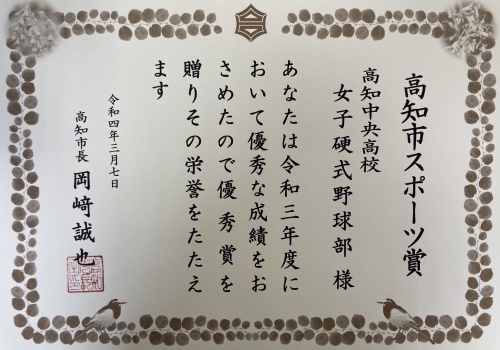 高知市スポーツ賞
高知中央高校
女子硬式野球部 様
あなたは令和三年度に
おいて優秀な成績をお
さめたので優秀賞を
贈りその栄誉をたたえ
ます
令和四年三月七日
高知市長 岡﨑誠也